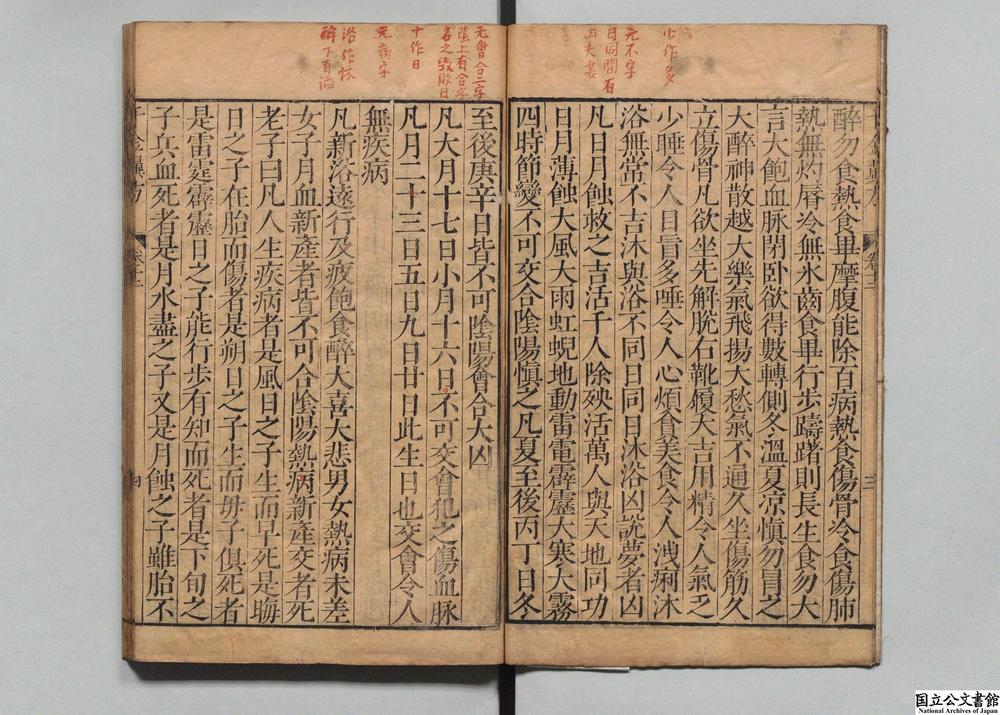 少作多
元不字
日同間有
出夫妻
醉勿食熱食畢摩腹能除百病熱食傷骨冷食傷肺
熱無灼脣冷無氷齒食畢行步躊躇則長生食勿大
言大飽血脉閉卧欲得數轉側冬溫夏凉愼勿冒之
大醉神散越大樂氣飛揚大愁氣不通久坐傷筋久
立傷骨凡欲坐先解脫右靴履大吉用精令人氣乏
少唾令人目盲多唾令人心煩食美食令人洩痢沐
浴無常不吉沐與浴不同日同日沐浴凶說夢者凶
凡日月蝕救之吉活千人除殃活萬人與天地同功
日月薄蝕大風大雨虹蜺地動雷電霹靂大寒大霧
四時節變不可交合陰陽愼之凡夏至後丙丁日冬
元會合二字
陰上有合字
名之發敗日
十作日
元病字
浴作沐
醉下有酒
至後庚辛日皆不可陰陽會合大凶
凡大月十七日小月十六日不可交會犯之傷血脉
凡月二十三日五日九日廿日此生日也交會令人
無疾病
凡新浴遠行及疲飽食醉大喜大悲男女熱病未差
女子月血新產者皆不可合陰陽熱病新產交者死
老子曰凡人生疾病者是風日之子生而早死是晦
日之子在胎而傷者是朔日之子生而毋子俱死者
是雷霆霹靂日之子能行步有知而死者是下旬之
子兵血死者是月水盡之子又是月蝕之子雖胎不
千金翼方
卷十二
四
三
国立公文書館
National Archives of Japan